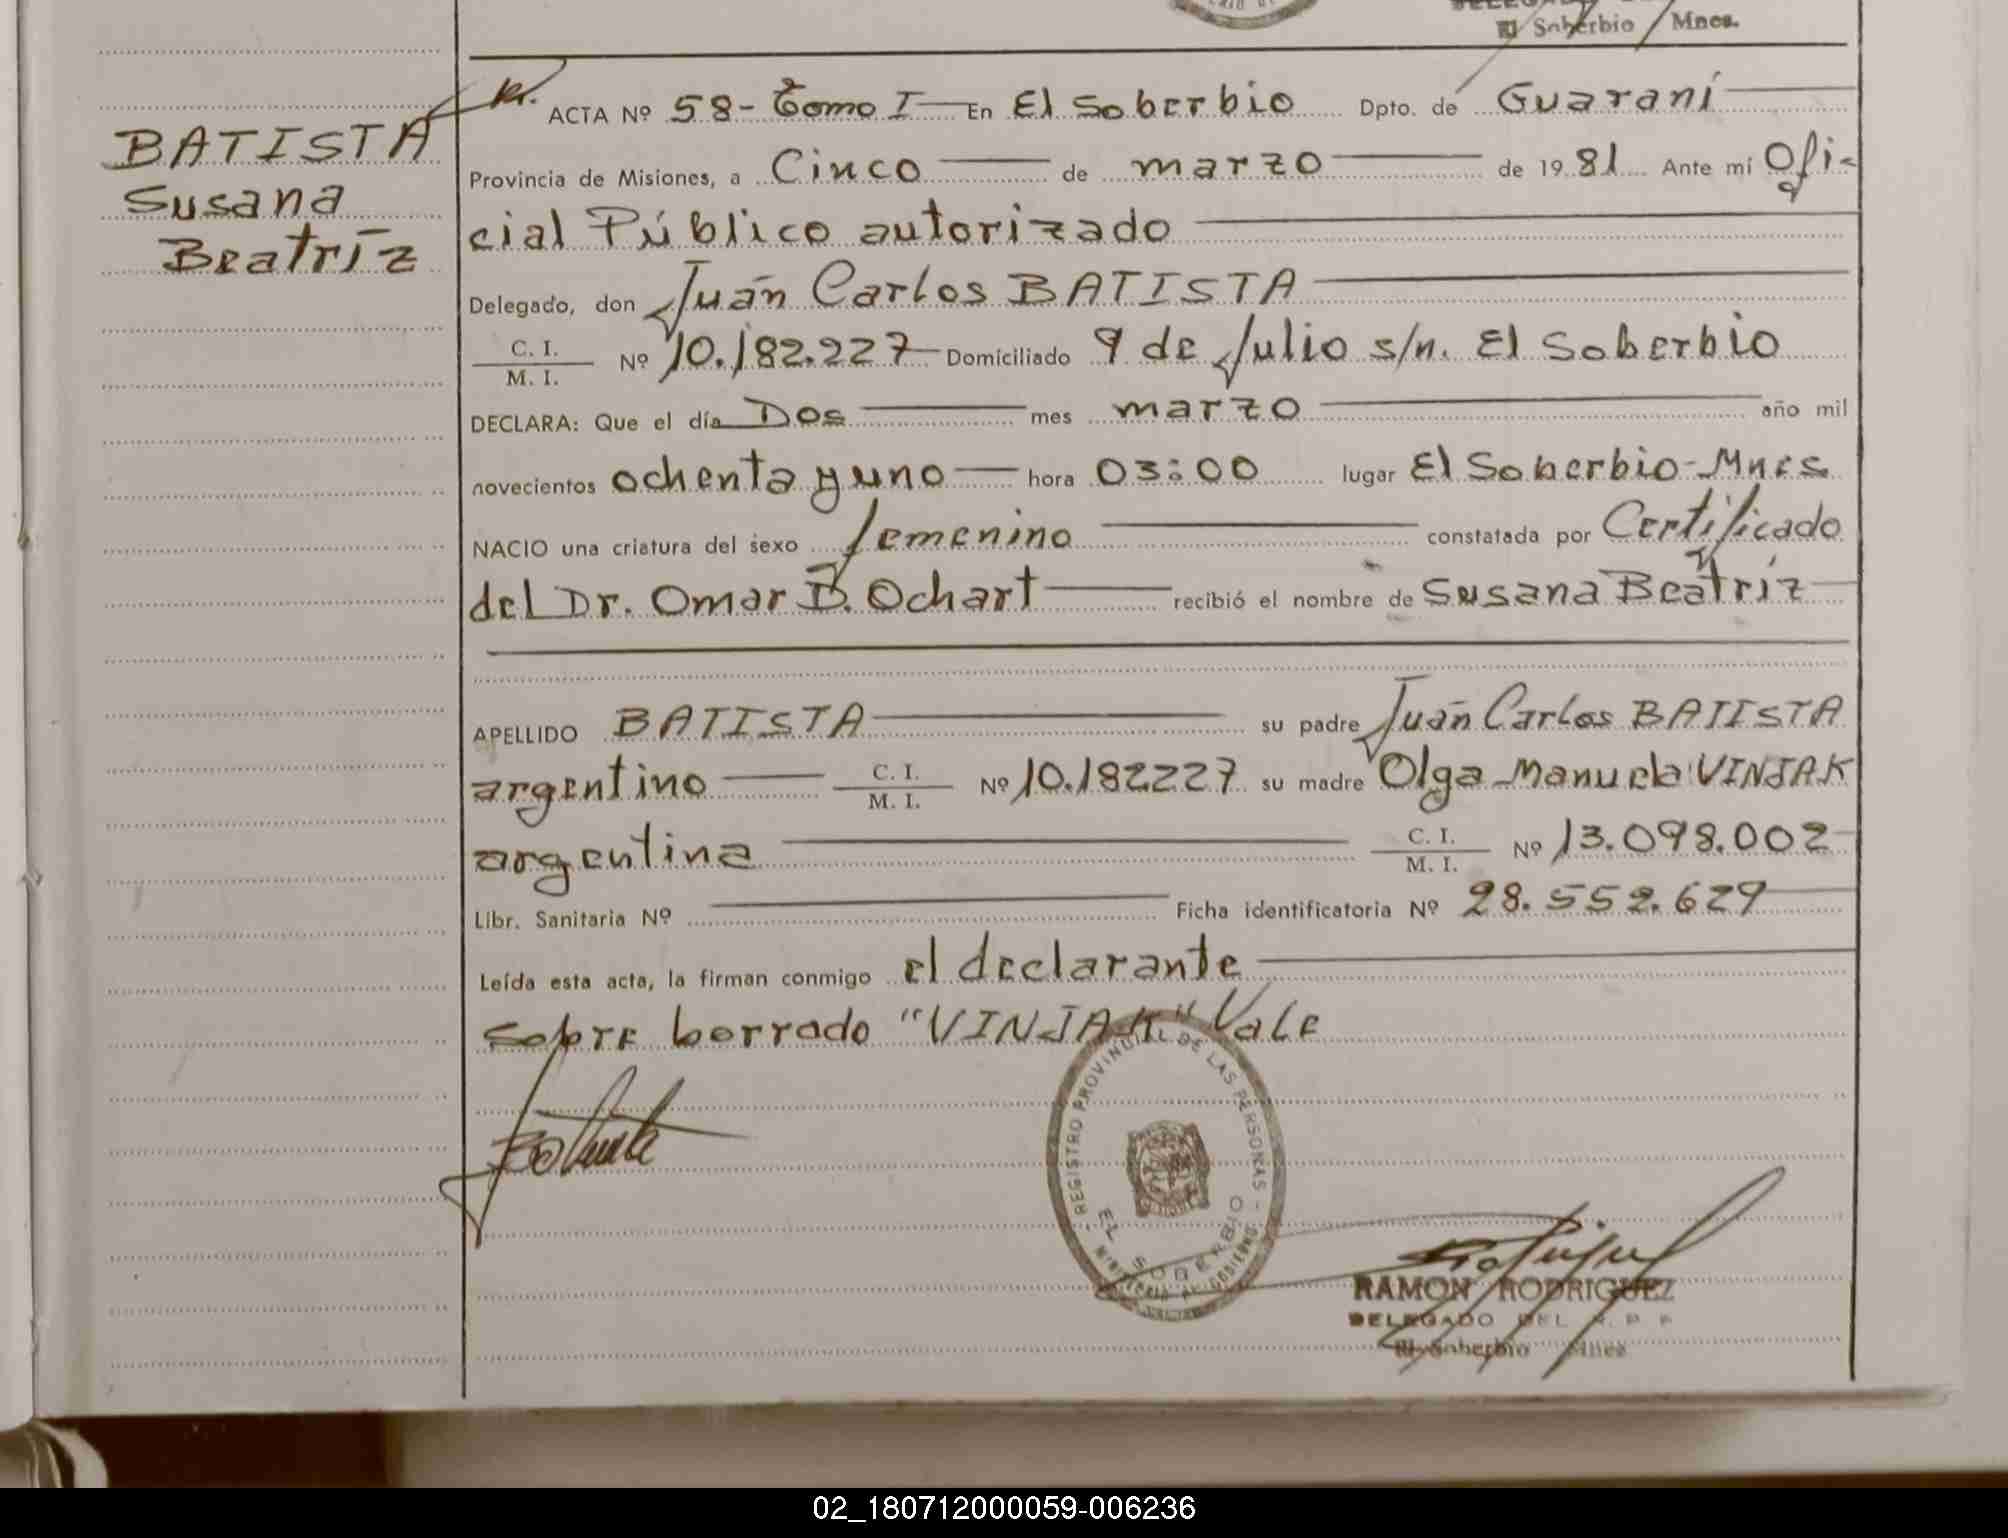 El Soberbio Mnes.
BATISTA
Susana
Beatríz
ACTA Nº 58- Tomo I En El Soberbio Dpto. de Guaraní
Provincia de Misiones, a Cinco de marzo de 1981 Ante mí Ofi-
cial Público autorizado
Delegado, don Juan Carlos BATISTA
C. I.
M. I. Nº 10.182.227 Domiciliado 9 de Julio s/n. El Soberbio
DECLARA: Que el día Dos mes marzo año mil
novecientos ochenta y uno hora 03:00 lugar El Soberbio-Mnes
NACIO una criatura del sexo femenino constatada por Certificado
del Dr. Omar B. Ochart recibió el nombre de Susana Beatríz
APELLIDO BATISTA su padre Juan Carlos BATISTA
argentino C. I.
M. I. Nº 10.182227 su madre Olga Manuela VINJAK
argentina C. I.
M. I. Nº 13.098.002
Libr. Sanitaria Nº Ficha identificatoria Nº 28.552.629
Leída esta acta, la firman conmigo el declarante
sobre borrado "VINJAK" Vale
REGISTRO PROVINCIAL DE LAS PERSONAS
EL SOBERBIO
RAMON RODRIGUEZ
DELEGADO DEL R. P. P.
El Soberbio Mnes
02_180712000059-006236